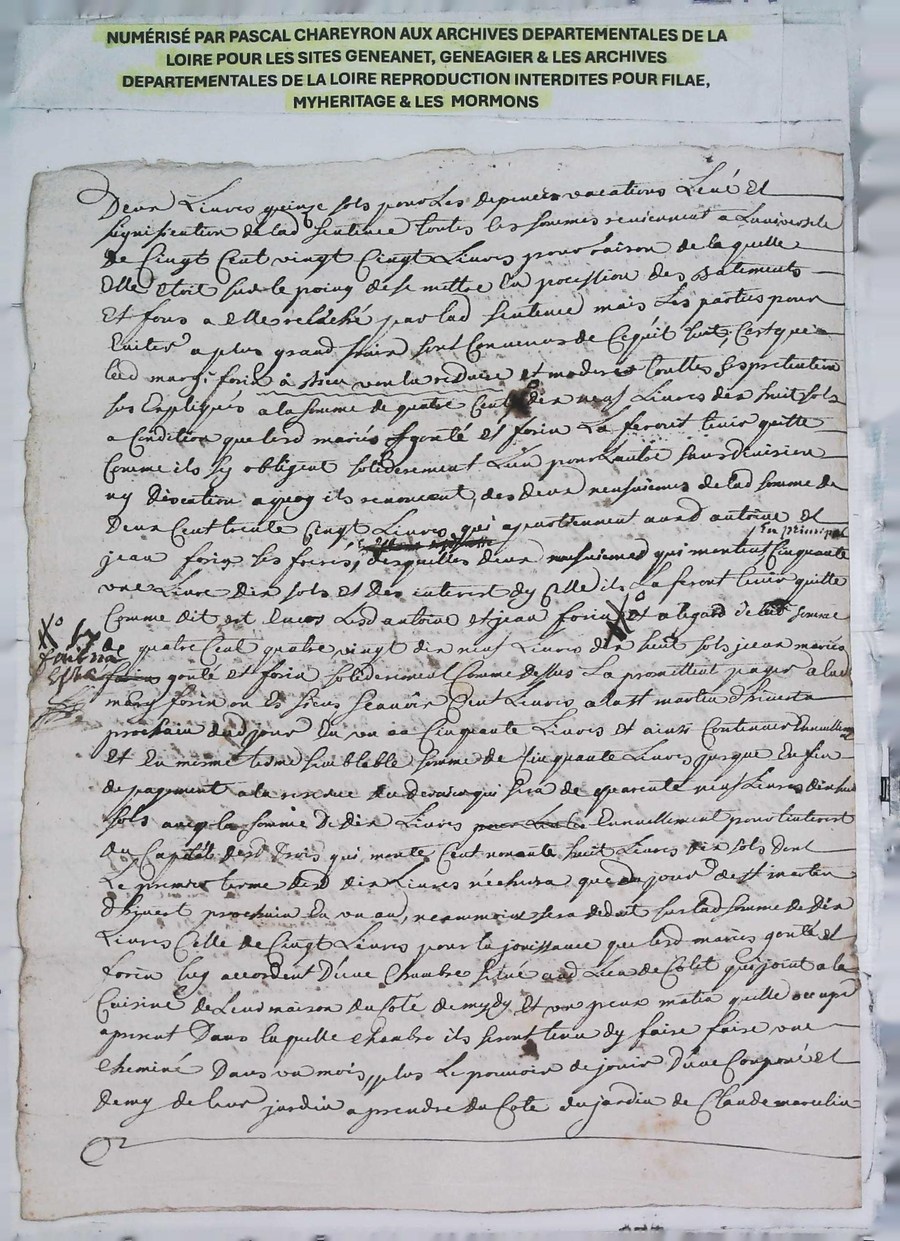 NUMÉRISÉ PAR PASCAL CHAREYRON AUX ARCHIVES DEPARTEMENTALES DE LA
LOIRE POUR LES SITES GENEANET, GENEAGIER & LES ARCHIVES
DEPARTEMENTALES DE LA LOIRE REPRODUCTION INTERDITES POUR FILAE,
MYHERITAGE & LES MORMONS
Deux Livres quinze sols pour Les depences vacations Levé Et
signification de lad sentence toutes les sommes reviennent a
de Cinqt Cent vingt Cinqt Livres pour raison de la quelle
Elle Etoit sur le poing de se mettre En pocession des Batements
Et fons a Elle relaché par lad sentence mais Les parties pour
Eviter a plus grand frain sont Convenues de Cequil suit, Cest que
led forin à bien voulu reduire et moderer touttes ses pretention
sus Expliqués a la somme de quatre Cent dix neuf Livres dix huit sols
a Condition que lesd mariés gonté et forin La feront tenir quitte
Comme ils sy obligent soliderement Lun pour Lautre sans division
ny discution a quoy ils renoncent, des deux neufuiemes de lad somme de
Deux Cent trente Cinqt Livres qui apartiennent aud antoine et
En principal
jean forin ses freres, desquelles deux neufuiemes qui montent Cinquante
une Livre dix sols Et des interest dy celle ils La feront tenir quitte
Comme dit est Envers Lesd antoine et jean forin Et a legard de lad somme
de quatre Cent quatre vingt dix neuf Livres dix huit sols mariés
gonté et forin soliderement Comme dessus La promettent payer a lad
forin ou Es siens Scavoir Cent Livres a la st martin dhivert
prochain dud jour En un an Cinquante Livres et ainsi Continuer Ennuellement
Et En meme terme semblable somme de Cinquante Livres jusque En fin
de payement a la reserve du dernier qui sera de quarente neuf Livres dix huit
sols avec la somme De dix Livres Ennuellement pour Linterest
du Capital desd trois qui monte Cent nonante huit Livres dix sols dont
Le premier terme desd dix Livres néchera que du jour de st martin
dhivert prochain En un an, neammoins sera deduit sur lad somme de dix
Livres Celle de Cinqt Livres pour la jouissance que lesd mariés gonté et
forin luy accordent D'une Chambre situé aud Lieu de Colet qui joint a la
Cuisine de Leurd maison du Coté de mydy Et un quelle occupe
apresent Dans laquelle Chambre ils seront tenu dy faire faire une
Cheminé Dans un mois, plus Le pouvoir de jouir D'une Couponé et
demy de leur jardin a prendre du Coté du jardin de Claude marcelin